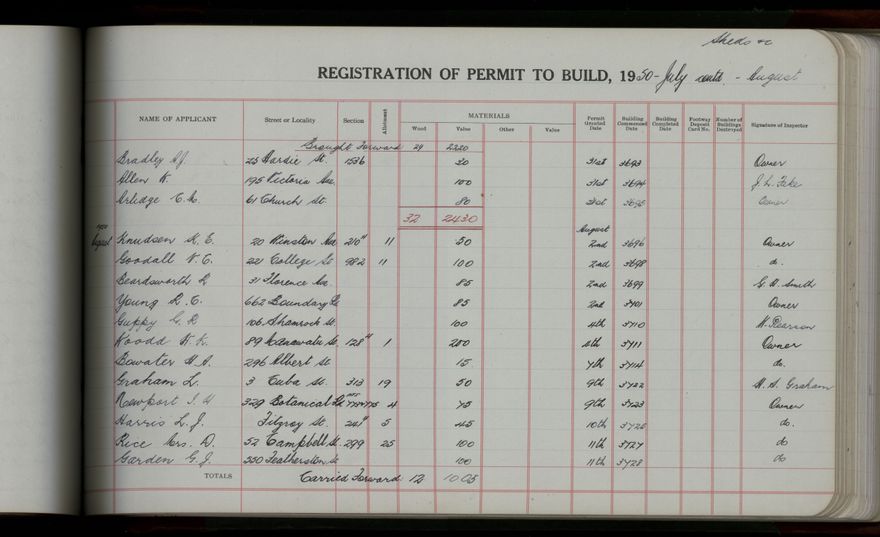 Sheds &c
REGISTRATION OF PERMIT TO BUILD, 1950 - July contd. - August
NAME OF APPLICANT Street or Locality Section Allotment MATERIALS Permit Granted Date Building Commenced Date Building Completed Date Footway Deposit Card No. Number of Buildings Destroyed Signature of Inspector
Wood Value Other Value
Brought Forward 29 2220
Bradley A.J. 25 Hardie St. 1536 30 31st 3693 Owner
Allen W. 195 Victoria Ave. 100 31st 3694 J. L. Fake
Arlidge C.M. 61 Church St. 80 31st 3695 Owner
32 2430
1950 August
August Knudson K. E. 20 Winston Ave. 210" 11 50 2nd 3696 Owner
Goodall V. C. 221 College St. 982 11 100 2nd 3698 do.
Beardsworth R 31 Florence Ave. 85 2nd 3699 G. A. Smith
Young R. C. 662 Boundary Rd 85 2nd 3701 Owner
Guppy G. R 106 Shamrock St. 100 4th 3710 H. Pearson
89 Manawatu St. 128" 1 200 4th 3711 Owner
Bowater H. A. 296 Albert St. 15 7th 3714 do.
Graham L. 3 Cuba St. 313 19 50 9th 3722 H. A. Graham
Newport 329 Botanical Rd 4 75 9th 3723 Owner
Harris L. J. Fitzroy St. 241" 5 45 10th 3725 do.
Rice Mrs. D. 52 Campbell St. 299 25 100 11th 3727 do
Garden G. J. 550 Featherston St 100 11th 3728 do
TOTALS Carried Forward 12 1005